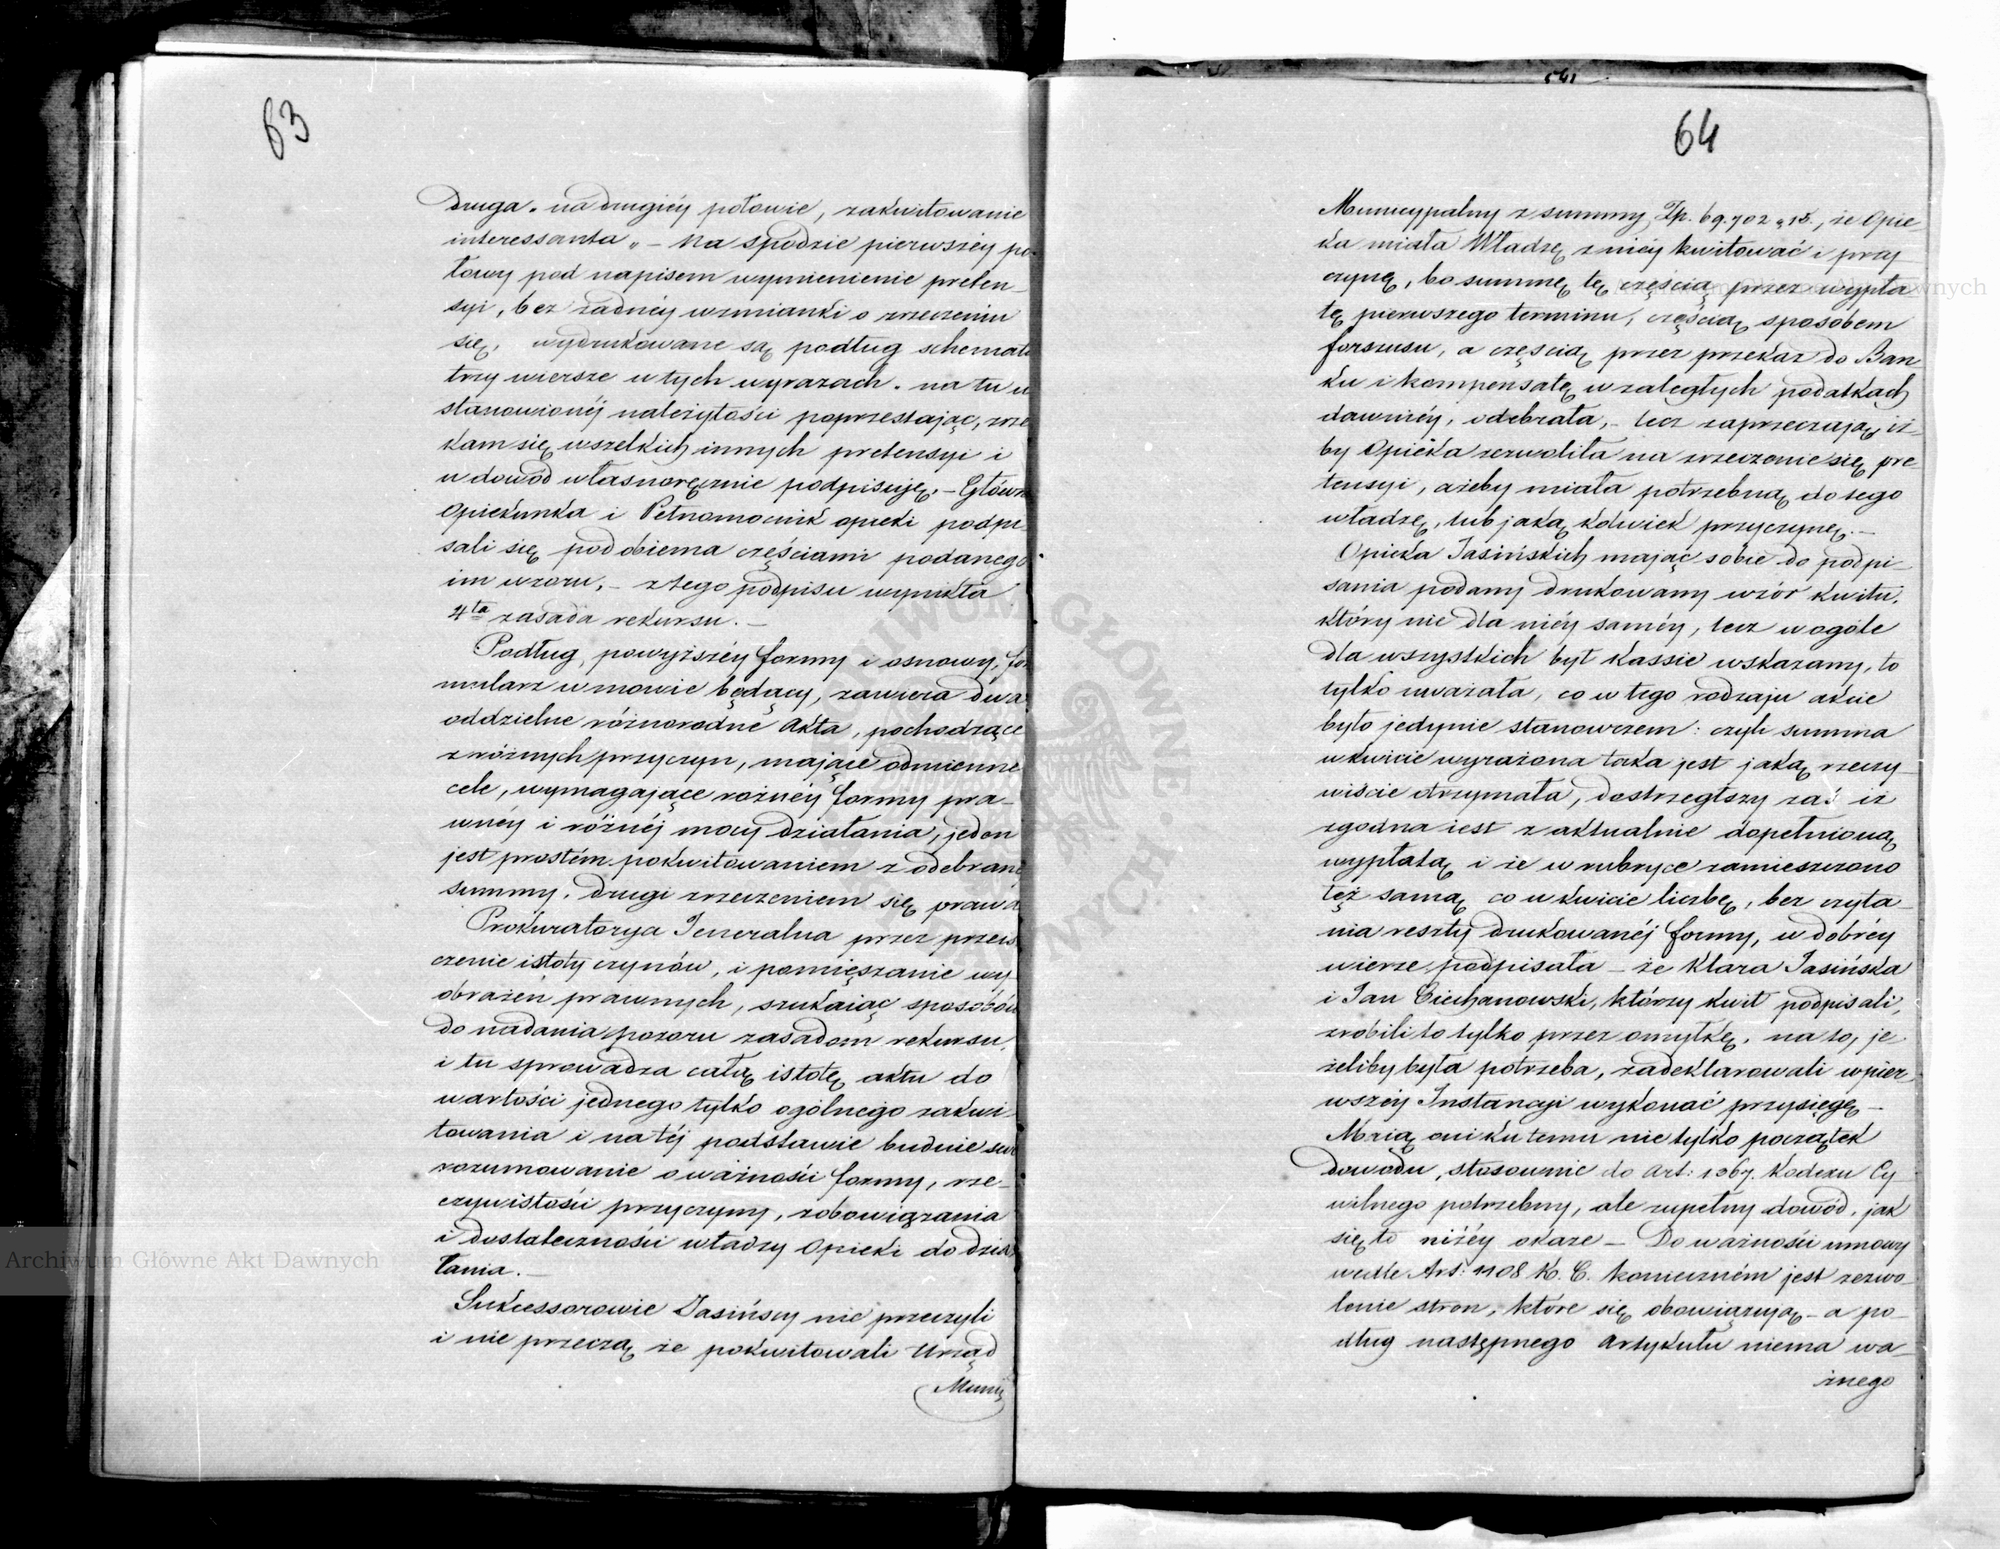 63
druga „ na drugiéy połowie, zakwitowanie
interessanta „ – Na spodzie pierwszéy po-
łowy pod napisem wymienienie preten-
syi, bez żadnéy wzmianki o zrzeczeniu
się, wydrukowane są podług schematu
trzy wiersze w tych wyrazach. na tu u
stanowionéj należytości poprzestając, zrze
kam się wszelkich innych pretensyi i
w dowód własnoręcznie podpisuję. – Główna
opiekunka i Pełnomocnik opieki podpi
sali się pod obiema częściami podanego
im wzoru, – z tego podpisu wynikła
4ta zasada rekursu. –
Podług, powyższéy formy i osnowy, for
mularz w mowie będący, zawiera dwa
oddzielne różnorodne Akta, pochodzące
z różnych przyczyn, mające odmienne
cele, wymagające różnéy formy pra-
wnéy i różnéj mocy działania, jeden
jest prostém pokwitowaniem z odebranéj
summy. drugi zrzeczeniem się prawa
Prokuratorya Jeneralna przez przeis
czenie istoty czynów, i pomięszanie wy
obrażeń prawnych, szukaiąc sposobów
do nadania pozoru zasadom rekursu,
i tu sprowadza całą istotę aktu do
wartości jednego tylko ogólnego zakwi-
towania i na téj podstawie buduie swe
rozumowanie o ważności formy, rze-
czywistości przyczyny, zobowiązania
i dostateczności władzy Opieki do dzia
łania. –
Sukcessorowie Jasińscy nie przeczyli
i nie przeczą że pokwitowali Urząd
Muni
64
Municypalny z summy Zp. 69.702 „ 15., że Opie
ka miała Władzę z niéy kwitować i przy
czynę, bo summę tę częścią przez wypła
tę pierwszego terminu, częścią sposobem
forszusu, a częścią przez przekaz do Ban-
ku i kompensatę w zaległych podatkach
dawniéy, odebrała, – lecz zaprzeczają iż-
by Opieka zezwoliła na zrzeczenie się pre
tensyi, ażeby miała potrzebną do tego
władzę, lub jaką kolwiek przyczynę. –
Opieka Jasińskich mając sobie do podpi
sania podany drukowany wzór kwitu,
który nie dla niéy saméy, lecz w ogóle
dla wszystkich był Kassie wskazany, to
tylko uważała, co w tego rodzaju akcie
było jedynie stanowczem: czyli summa
w kwicie wyrażona taka jest jaką rzeczy-
wiście otrzymała, dostrzegłszy zaś iż
zgodna iest z aktualnie dopełnioną
wypłatą i że w rubryce zamieszczono
też samą co w kwicie liczbę, bez czyta-
nia reszty drukowanéj formy, w dobréy
wierze podpisała – że Klara Jasińska
i Jan Ciechanowski, którzy kwit podpisali,
zrobili to tylko przez omyłkę, na to, je
żeliby była potrzeba, zadeklarowali w pier
wszéy Instancyi wykonać przysięgę –
Maią oni ku temu nie tylko początek
dowodu, stosownie do Art: 1367. Kodexu Cy
wilnego potrzebny, ale zupełny dowód, jak
się to niżéy okaże – Do ważności umowy
wedle Art: 1108 K. C. konieczném jest zezwo-
lenie stron, które się obowiązują – a po-
dług następnego Artykułu niema wa-
żnego
Archiwum Główne Akt Dawnych